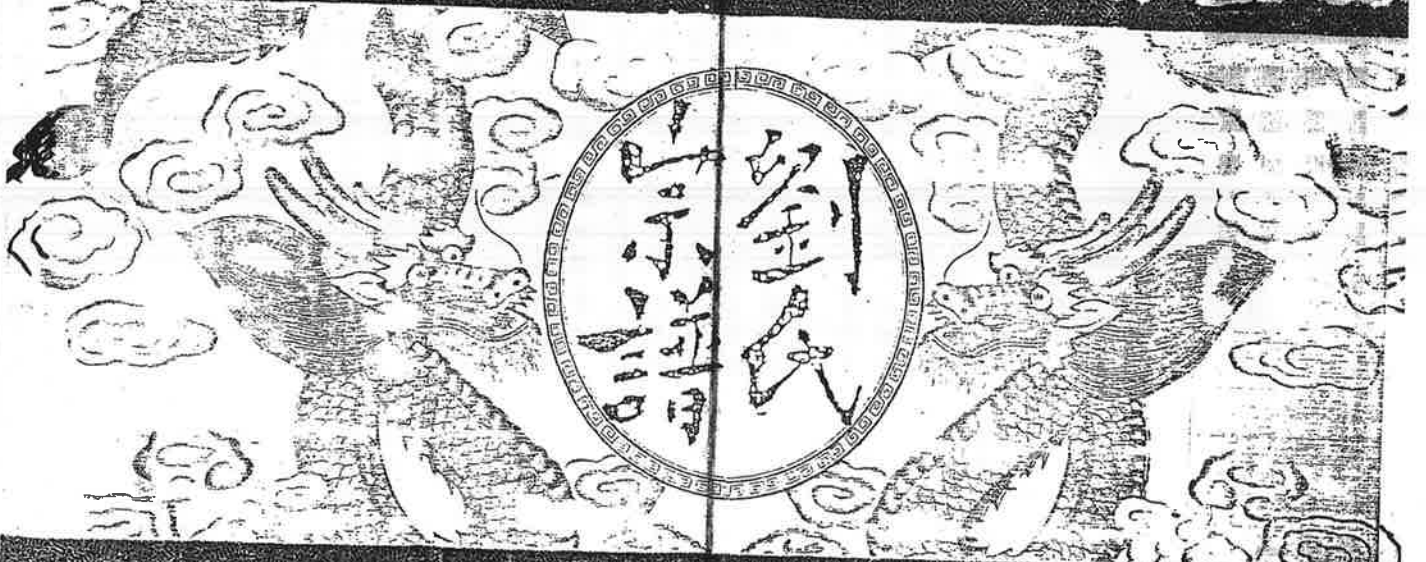 劉氏
宗譜